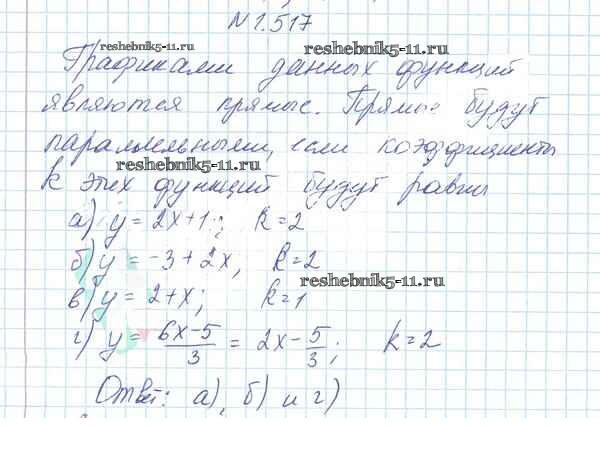 N 1.517
reshebnik5-11.ru
reshebnik5-11.ru
Графиками данных функций
являются прямые. Прямые будут
параллельными, если коэффициенты
reshebnik5-11.ru
k этих функций будут равны
а) y = 2x+1; k=2
б) y = -3+2x, k=2
reshebnik5-11.ru
в) y = 2+x; k=1
г) y = \frac{6x-5}{3} = 2x - \frac{5}{3}; k=2
Ответ: а), б) и г)